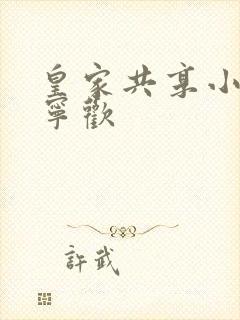 皇家共享小
寧歡
許武